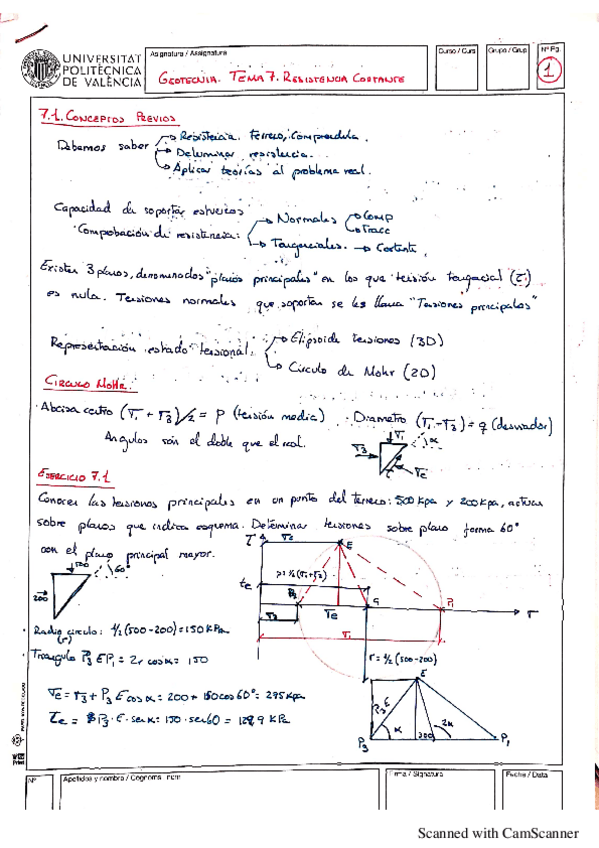 UNIVERSITAT
POLITÈCNICA
DE VALÈNCIA
Asignatura / Assignatura
GEOTECNIA. TEMA 7. RESISTENCIA CORTANTE
Curso / Curs
Grupo / Grup
Nº Pg.
1
7.1. CONCEPTOS PREVIOS
Debemos saber
Resistencia terreno, comprenderla.
Determinar resistencia.
Aplicar teorías al problema real.
Capacidad de soportar esfuerzos
Comprobación de resistencia:
Normales
Comp
Tracc
Tangenciales. → Cortante.
Existen 3 planos, denominados "planos principales" en los que tensión tangencial (τ)
es nula. Tensiones normales que soportan se les llama "Tensiones principales"
Representación estado tensional
Elipsoide tensiones (3D)
Círculo de Mohr (2D)
CIRCULO MOHR.
· Abcisa centro (σ1 + σ3)/2 = p (tensión media) · Diametro (σ1-σ3) = q (desviador)
Angulos son el doble que el real.
σ1
α
σ3
σe
τ
EJERCICIO 7.1
Conocer las tensiones principales en un punto del terreno: 500 kPa y 200 kPa, actuan
sobre planos que indica esquema. Determinar tensiones sobre plano forma 60°
con el plano principal mayor.
500
60°
200
τ
σe
E
p=1/2(σ1+σ3)
τe
P3
G
P1
σ
σ3
σe
σ1
r=1/2 (500-200)
· Radio circulo: 1/2 (500-200) = 150 kPa
(r)
· Triangulo P3 E P1 = 2r cosα = 150
σe = σ3 + P3 E cosα = 200 + 150 cos60° = 275 kPa
τe = P3 · E · senα = 150 · sen60 = 129,9 kPa
E
P3 E
α
200
2α
P3
P1
Nº
Apellidos y nombre / Cognoms i nom
Firma / Signatura
Fecha / Data
Scanned with CamScanner